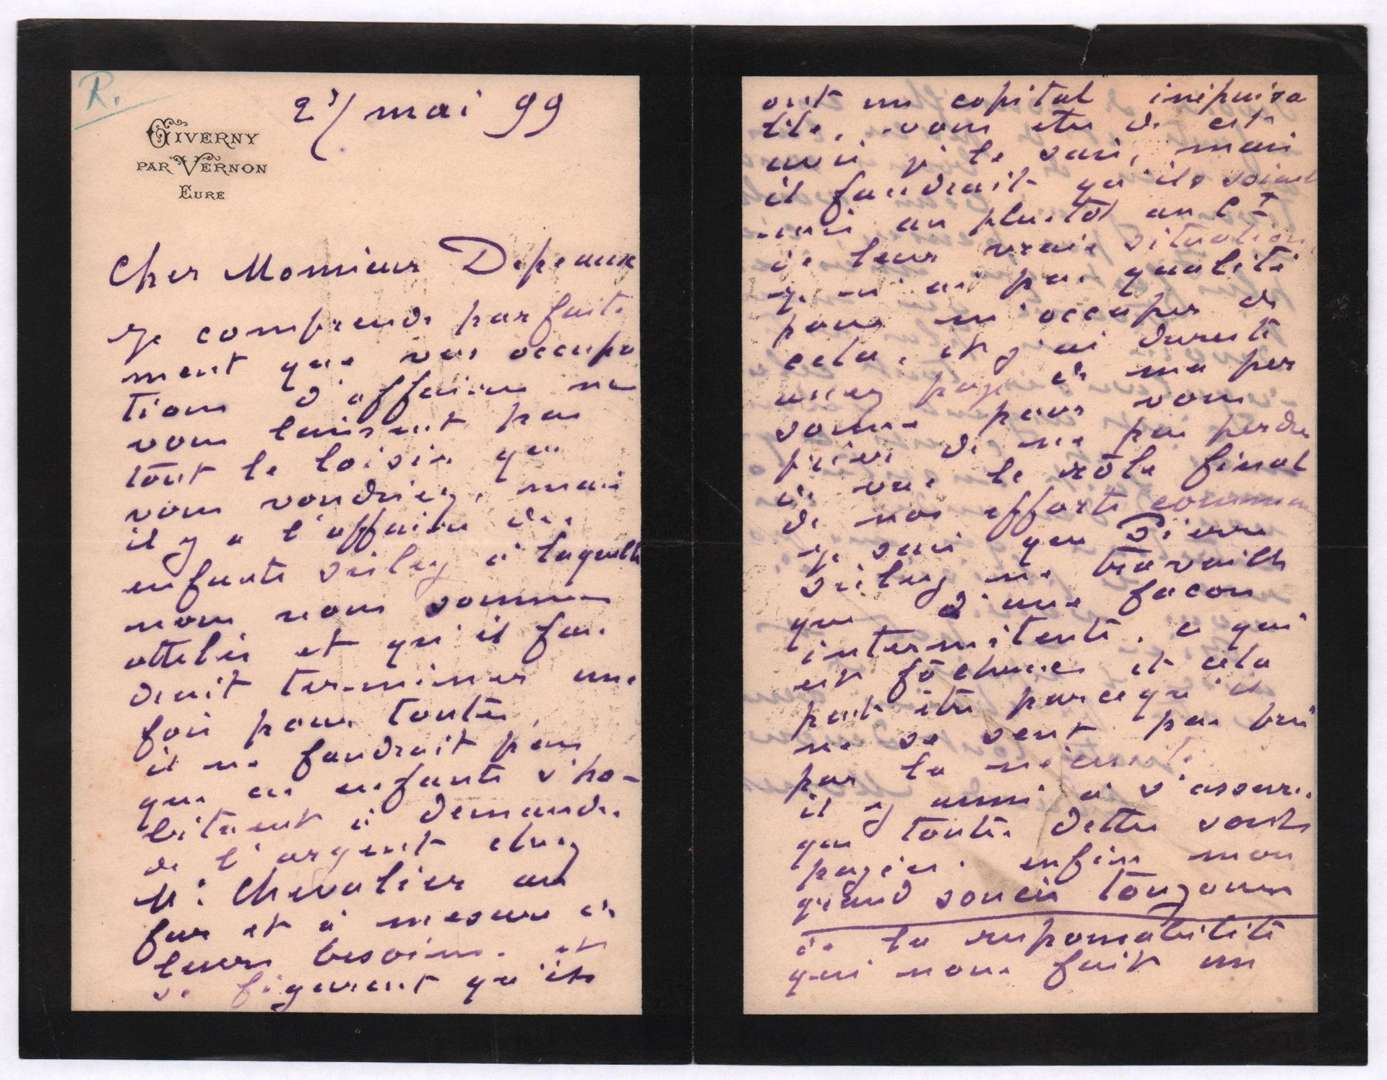 R.
27 mai 99
GIVERNY
PAR VERNON
EURE
Cher Monsieur Depeaux
Je comprends parfaite
ment que vos occupa
tions d'affaires ne
vous laissent pas
tout le loisir que
vous voudriez, mais
il y a l'affaire des
enfants Sisley à laquelle
nous nous sommes
attelés et qu'il fau.
drait terminer une
fois pour toutes,
il ne faudrait pas
que ces enfants s'ha-
bituent à demander
de l'argent chez
M. Chevalier au
fur et à mesure de
leurs besoins. et
se figurent qu'ils
ont un capital inépuisa
ble, vous êtes de cet
avis je le sais, mais
il faudrait qu'ils soient
mis au plus tôt au Ct
de leur vraie situation,
je n'ai pas qualité
pour m'occuper de
cela, et j'ai
assez payé de ma per
sonne pour vous
prier de ne pas perdre
de vue le rôle final
de nos efforts communs
je sais que Pierre
Sisley ne travaille
que d'une façon
intermittente. ce qui
est fâcheux et cela
peut être parce qu'il
ne se sent pas
par la nécessité.
il y aussi à s'assurer
que toutes dettes sont
payées. enfin mon
grand soucis toujours
de la responsabilité
qui nous fait un